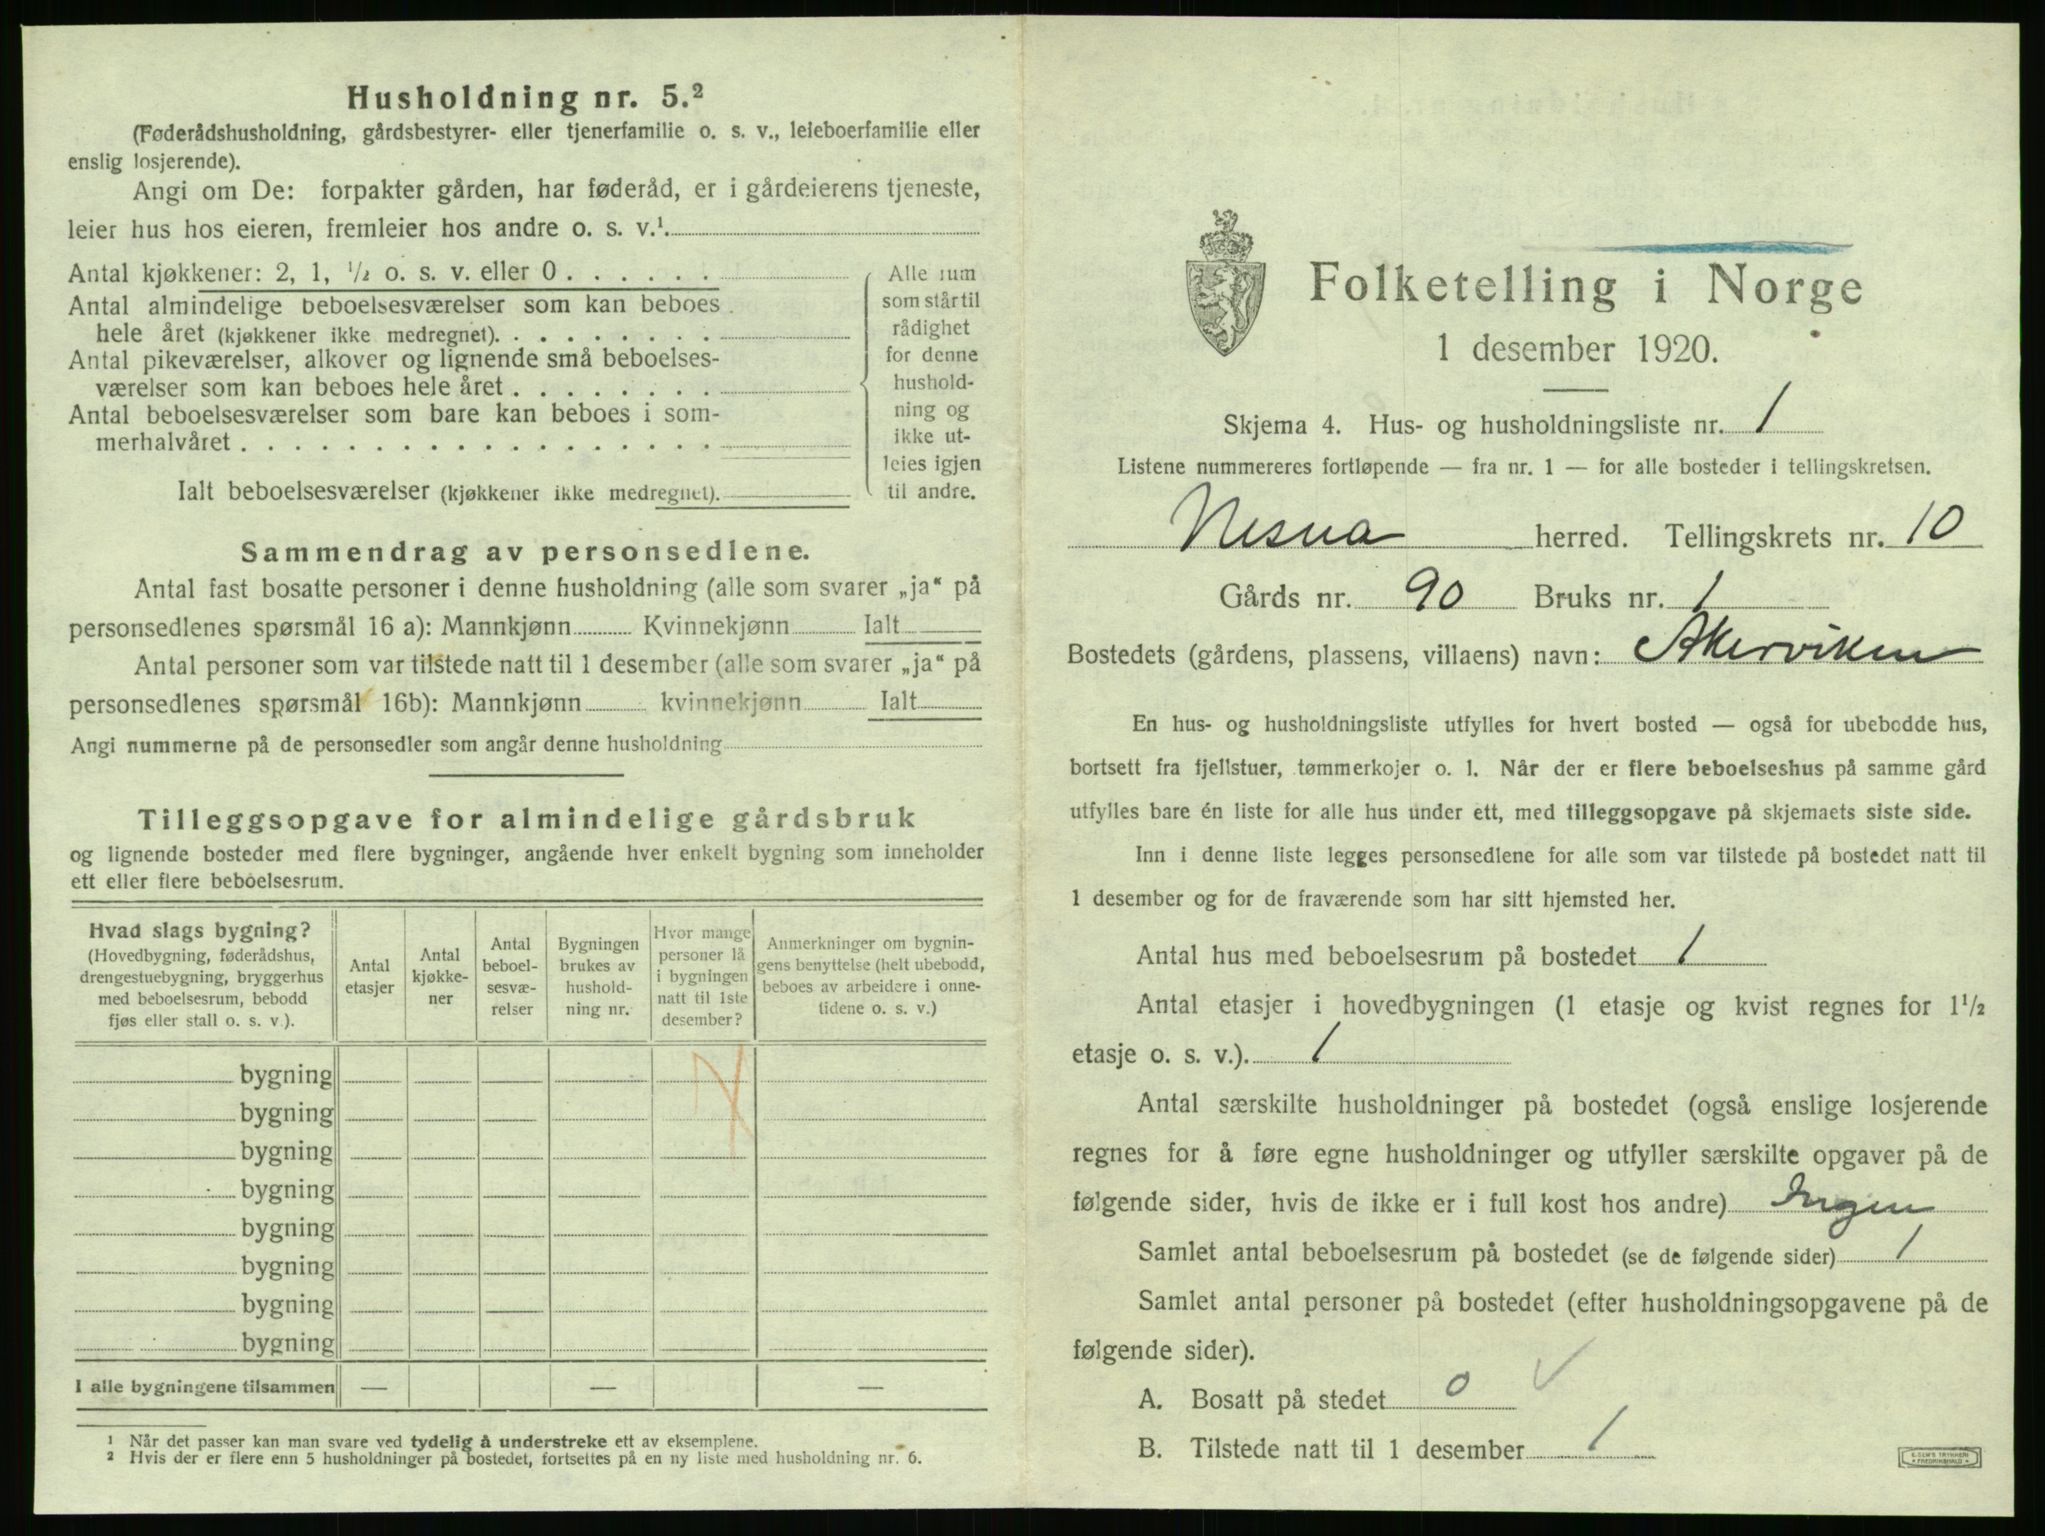 Husholdning nr. 5.²
(Føderådshusholdning, gårdsbestyrer- eller tjenerfamilie o. s. v., leieboerfamilie eller
enslig losjerende).
Angi om De: forpakter gården, har føderåd, er i gårdeierens tjeneste,
leier hus hos eieren, fremleier hos andre o. s. v.¹.
Antal kjøkkener: 2, 1, ½ o. s. v. eller 0 . . . . . .
Antal almindelige beboelsesværelser som kan beboes
hele året (kjøkkener ikke medregnet). . . . . . . . .
Antal pikeværelser, alkover og lignende små beboelses-
værelser som kan beboes hele året . . . . . . . .
Antal beboelsesværelser som bare kan beboes i som-
merhalvåret . . . . . . . . . . . . . . . . . .
Ialt beboelsesværelser (kjøkkener ikke medregnet).
Alle rum
som står til
rådighet
for denne
hushold-
ning og
ikke ut-
leies igjen
til andre.
Sammendrag av personsedlene.
Antal fast bosatte personer i denne husholdning (alle som svarer „ja“ på
personsedlenes spørsmål 16 a): Mannkjønn Kvinnekjønn Ialt
Antal personer som var tilstede natt til 1 desember (alle som svarer „ja“ på
personsedlenes spørsmål 16b): Mannkjønn kvinnekjønn Ialt
Angi nummerne på de personsedler som angår denne husholdning
Tilleggsopgave for almindelige gårdsbruk
og lignende bosteder med flere bygninger, angående hver enkelt bygning som inneholder
ett eller flere beboelsesrum.
Hvad slags bygning?
(Hovedbygning, føderådshus,
drengestuebygning, bryggerhus
med beboelsesrum, bebodd
fjøs eller stall o. s. v.).
Antal
etasjer
Antal
kjøkke-
ner
Antal
beboel-
sesvæ-
relser
Bygningen
brukes av
hushold-
ning nr.
Hvor mange
personer lå
i bygningen
natt til 1ste
desember?
Anmerkninger om bygnin-
gens benyttelse (helt ubebodd,
beboes av arbeidere i onne-
tidene o. s. v.)
bygning
bygning
bygning
bygning
bygning
bygning
bygning
bygning
I alle bygningene tilsammen — — —
¹ Når det passer kan man svare ved tydelig å understreke ett av eksemplene.
² Hvis der er flere enn 5 husholdninger på bostedet, fortsettes på en ny liste med husholdning nr. 6.
Folketelling i Norge
1 desember 1920.
Skjema 4. Hus- og husholdningsliste nr. 1
Listene nummereres fortløpende — fra nr. 1 — for alle bosteder i tellingskretsen.
Nesna herred. Tellingskrets nr. 10
Gårds nr. 90 Bruks nr. 1
Bostedets (gårdens, plassens, villaens) navn: Akerviken
En hus- og husholdningsliste utfylles for hvert bosted — også for ubebodde hus,
bortsett fra fjellstuer, tømmerkojer o. l. Når der er flere beboelseshus på samme gård
utfylles bare én liste for alle hus under ett, med tilleggsopgave på skjemaets siste side.
Inn i denne liste legges personsedlene for alle som var tilstede på bostedet natt til
1 desember og for de fraværende som har sitt hjemsted her.
Antal hus med beboelsesrum på bostedet 1
Antal etasjer i hovedbygningen (1 etasje og kvist regnes for 1½
etasje o. s. v.). 1
Antal særskilte husholdninger på bostedet (også enslige losjerende
regnes for å føre egne husholdninger og utfyller særskilte opgaver på de
følgende sider, hvis de ikke er i full kost hos andre) Ingen
Samlet antal beboelsesrum på bostedet (se de følgende sider) 1
Samlet antal personer på bostedet (efter husholdningsopgavene på de
følgende sider).
A. Bosatt på stedet 0 ✓
B. Tilstede natt til 1 desember 1